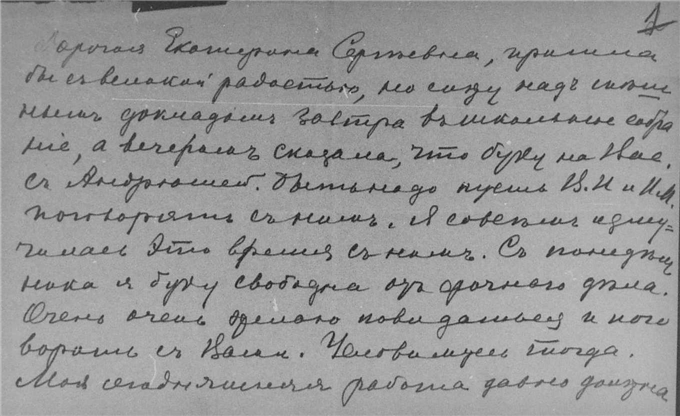 1
Дорогая Екатерина Сергѣевна, пришла
бы съ великой радостью, но сижу надъ
нымъ докладомъ завтра въ школьное собра
ніе, а вечеромъ сказала, что буду на
съ Андрюшей. надо пусть В.И и
поговорятъ съ нимъ. Я совсѣмъ изму-
чилась это время съ нимъ. Съ понедѣль
ника я буду свободна отъ срочного дѣла.
Очень очень желаю повидаться и пого
ворить съ Вами. Условимся тогда.
Моя сегодняшняя работа давно должна